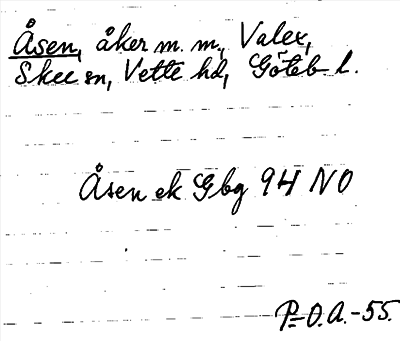 Åsen, åker m. m., Valex,
Skee sn, Vette hd, Göteb l.
Åsen ek Gbg 94 NO
P-O.A.-55.